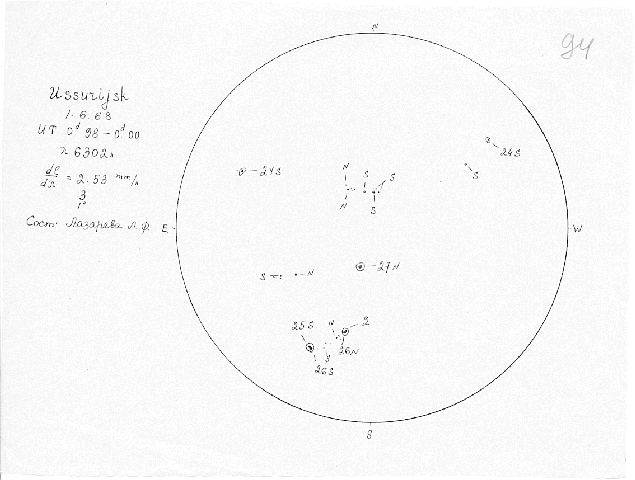 N
94
Ussurijsk
1.6.68
UT 0ᵈ 98 - 0ᵈ 00
λ 6302Å
dl/dλ = 2.53 mm/Å
3
Сост: Лазарева Л. Ф.
E
W
24S
S
-24S
N
S
S
N
S
-27N
S
-N
25S
N
2
26N
S
26S
S